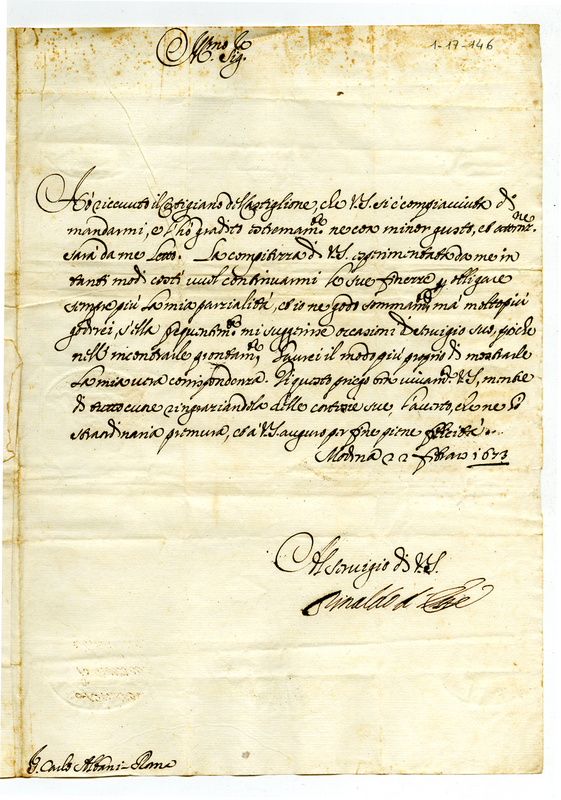 1-17-146
Ill.mo Sig.
Hò riceuuto il Cortigiano del Castiglione, che V.S. si è compiacciuta di
mandarmi, e l'hò gradito estremam.te ne con minor gusto, et attent.ne
sarà da me letto. La compitezza di V.S. esperimentata da me in
tanti modi così vuol continuarmi le sue finezze p obligare
sempre più la mia parzialità, et io ne godo sommam.te, mà molto più
godrei, s'ella frequentem.te mi suggerisse occasioni di seruigio suo, poiche
nell'incontrarle prontam.te haurei il modo più proprio di mostrarle
la mia uera corrispondenza. Di questo priego ben viuam.te V.S., mentre
di tutto cuore ringraziandola delle cortesie sue, l'accerto, che ne hò
straordinaria premura, et à V.S. auguro per fine piene felicità.
Modena 22 febraro 1673
Al seruigio di V.S.
Rinaldo d'Este
S. Carlo Albani - Roma